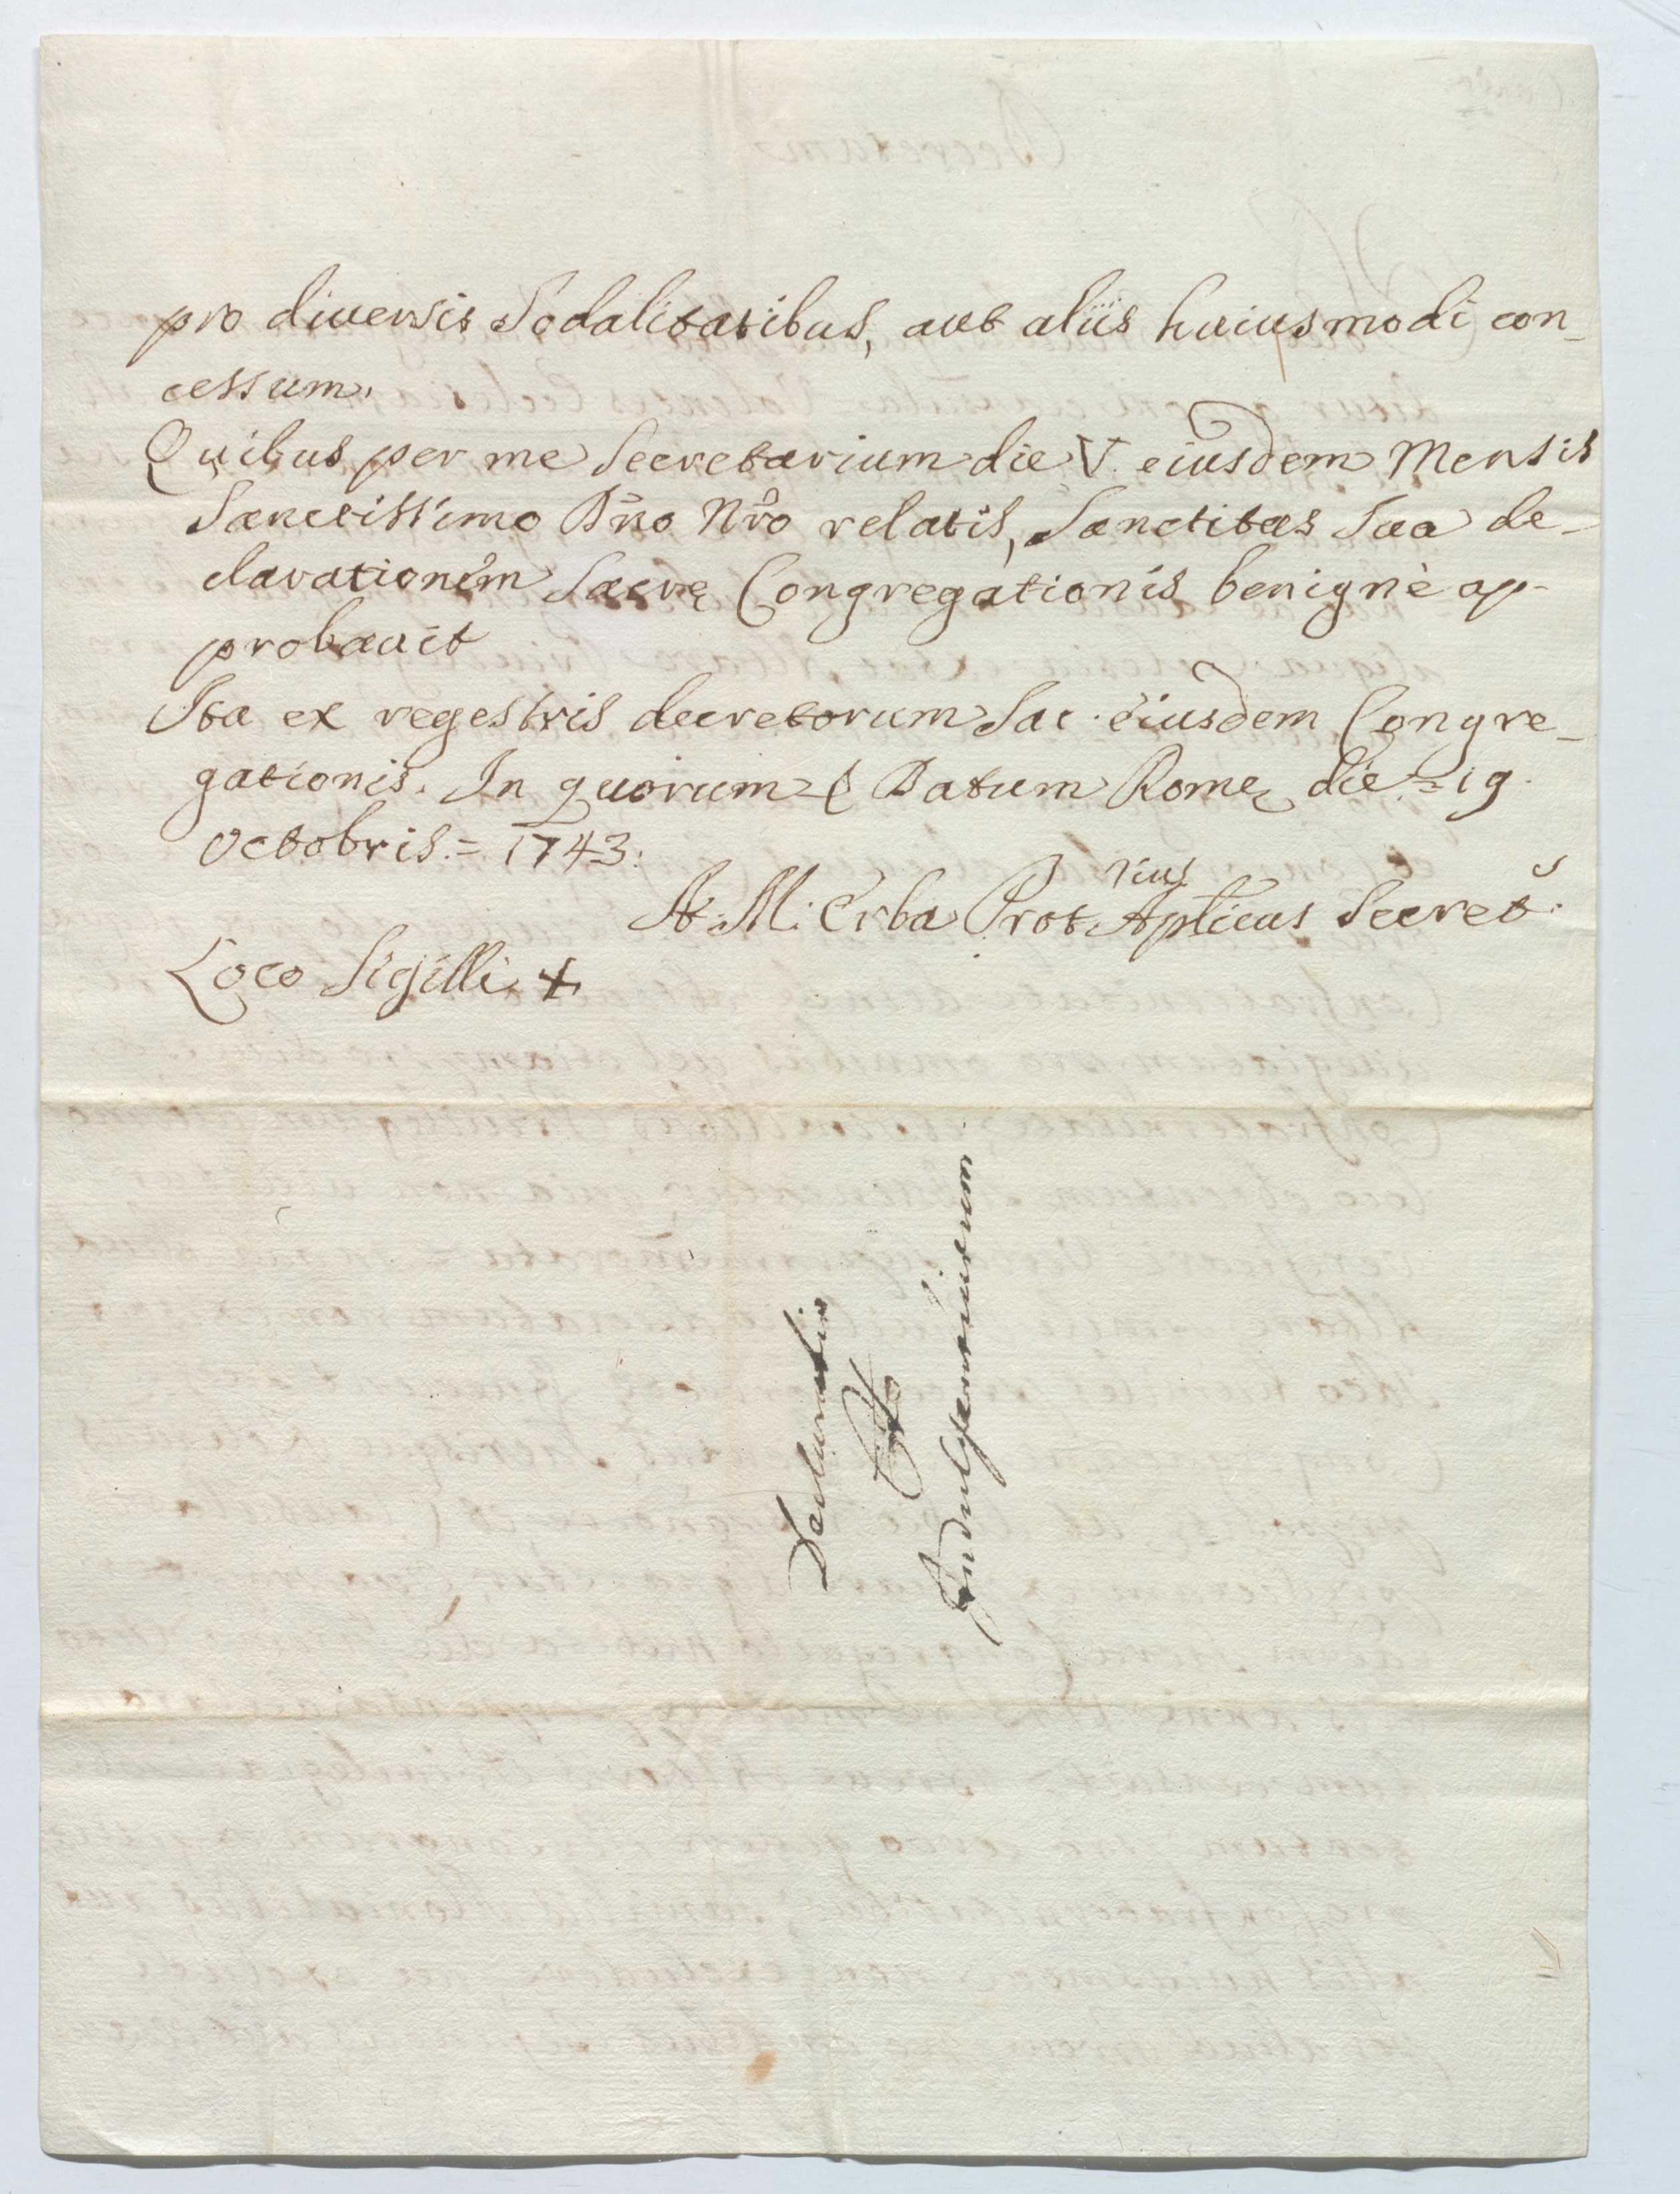 pro diuersis Sodalitatibus, aut aliis huiusmodi con_
cessum.
Quibus per me Secretarium die V. eiusdem Mensis
Sanctissimo Dno Nro relatis, Sanctitas Sua de_
clarationem Sacrę Congregationis benignè ap-
probauit
Ita ex regestris decretorum Sac. eiusdem Congre_
gationis. In quorum & Datum Romę die = 19.
Octobris. = 1743.
A. M. Erba Prot rius Aplicus Secret.
Loco Sigilli +
Declaratio
Indulgentiarum